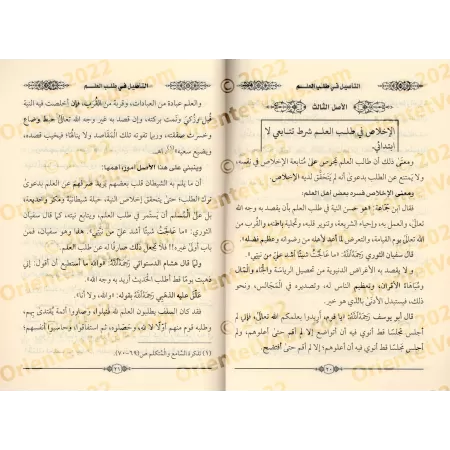 التأصيل في طلب العلم
الأصل الثالث
الإخلاص في طلب العلم شرط تتابعي لا
ابتدائي.
ومعنى ذلك أن طالب العلم يحرص على متابعة الإخلاص في نفسه،
ولا يمتنع عن الطلب بدعوى أنه لم يتحقق لديه الإخلاص.
ومعنى الإخلاص فسره بعض أهل العلم:
فقال ابن جماعة: «هو حسن النية في طلب العلم بأن يقصد به وجه الله
تعالى، والعمل به، وإحياء الشريعة، وتنوير قلبه، وتحلية باطنه، والقرب من
الله تعالى يوم القيامة، والتعرض لما أعد لأهله من رضوانه وعظيم فضله».
قال سفيان الثوري: «ما عالجت شيئًا أشد علي من نيتي».
ولا يقصد به الأغراض الدنيوية من تحصيل الرياسة والجاه والمال
ومباهاة الأقران، وتعظيم الناس له، وتصديره في المجالس، ونحو
ذلك، فيستبدل الأدنى بالذي هو خير.
قال أبو يوسف رحمه الله: «يا قوم، أريدوا بعلمكم الله تعالى، فإني لم
أجلس مجلسًا قط أنوي فيه أن أتواضع إلا لم أقم حتى أعلوهم، ولم
أجلس مجلسًا قط أنوي فيه أن أعلوهم؛ إلا لم أقم حتى أفتضح
٢٠
التأصيل في طلب العلم
والعلم عبادة من العبادات، وقربة من القرب، فإن خلصت فيه النية
قبل وزكى وتمت بركته، وإن قصد به غير وجه الله تعالى حبط وضاع
وخسرت صفقته، وربما تفوته تلك المقاصد ولا ينالها؛ فيخيب قصده،
ويضيع سعيه»(١).
وينبني على هذا الأصل أمور؛ أهمها:
ما يلم به الشيطان قلب بعضهم يريد صرفهم عن العلم بدعوى
ترك الطلب؛ حتى يتحقق إخلاص النية، حيلة شيطانية ومكيدة وعرة،
بل على المسلم أن يستمر في طلب العلم، ويتابع نيته، كما قال سفيان
الثوري: «ما عالجت شيئًا أشد علي من نيتي» إذا كان هذا سفيان فمن
باب أولى غيره!! فلا تجعل ذلك صارفًا له عن طلب العلم.
ولما قال هشام الدستوائي رحمه الله: «والله ما أستطيع أن أقول: إني
ذهبت يومًا قط أطلب الحديث أريد به وجه الله».
علق عليه الذهبي رحمه الله بقوله: «والله، ولا أنا».
فقد كان السلف يطلبون العلم لله فنبلوا، وصاروا أئمة يقتدى بهم،
وطلبه قوم منهم أولًا لا لله، وحصلوه، ثم استفاقوا، وحاسبوا أنفسهم؛
(١) تذكرة السامع والمتكلم ص(٦٩-٧٠).
٢١
© OrientetVous 2022